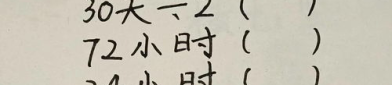 30天÷2（ ）
72小时（ ）
24小时（ ）